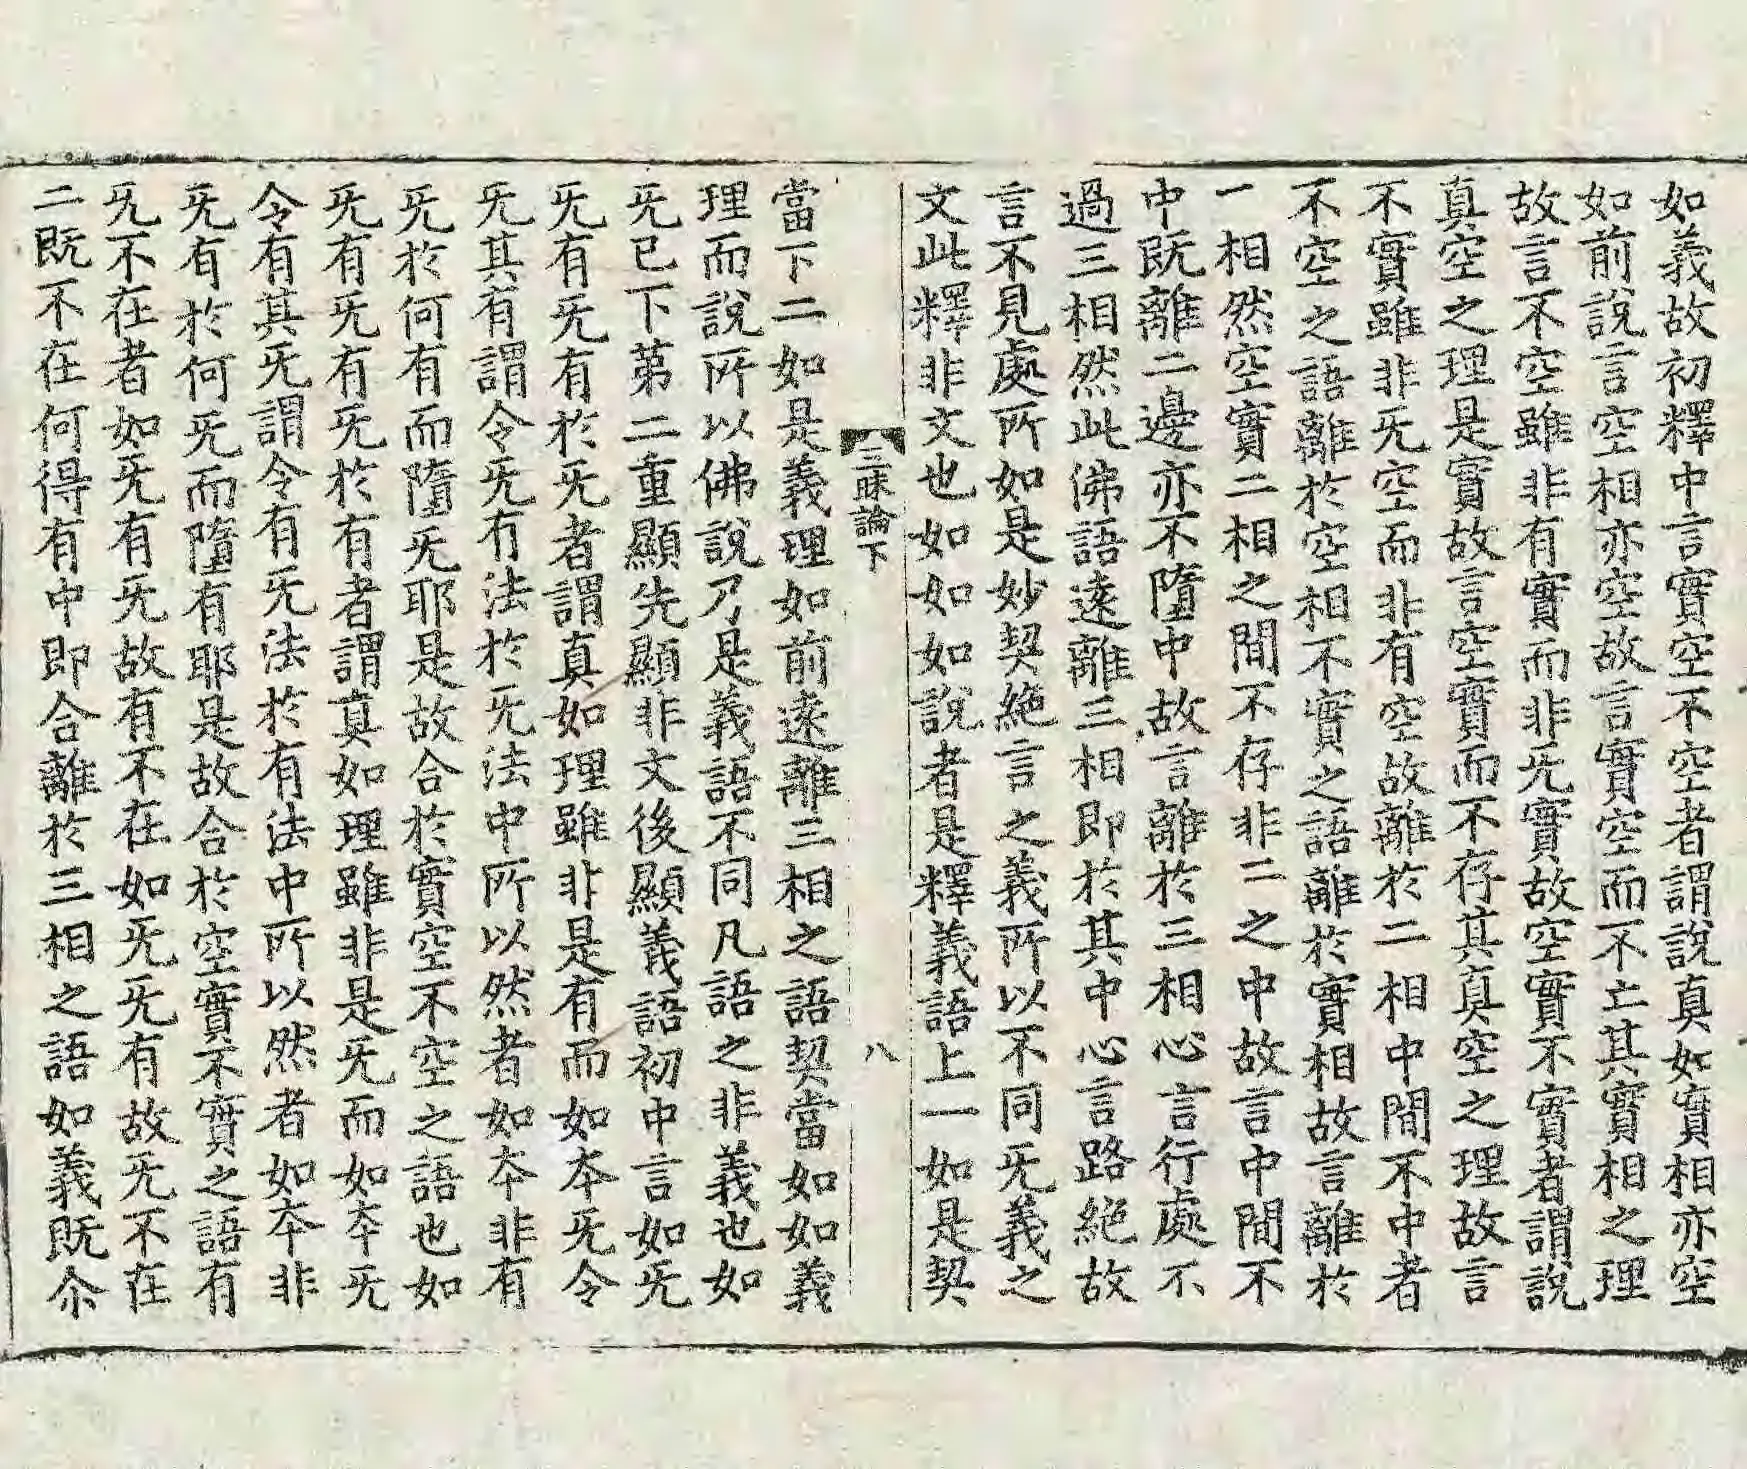 如義故初釋中言實空不空者謂說真如實相亦空
如前說言空相亦空故言實空而不亡其實相之理
故言不空雖非有實而非旡實故空實不實者謂說
真空之理是實故言空實而不存其真空之理故言
不實雖非旡空而非有空故離於二相中間不中者
不空之語離於空相不實之語離於實相故言離於
一相然空實二相之間不存非二之中故言中間不
中既離二邊亦不墮中故言離於三相心言行處不
過三相然此佛語遠離三相即於其中心言路絕故
言不見處所如是妙契絕言之義所以不同旡義之
文此釋非文也如如如說者是釋義語上一如是契
三昧論下
八
當下二如是義理如前遠離三相之語契當如如義
理而說所以佛說乃是義語不同凡語之非義也如
旡已下第二重顯先顯非文後顯義語初中言如旡
旡有旡有於旡者謂真如理雖非是有而如本旡令
旡其有謂令旡有法於旡法中所以然者如本非有
旡於何有而墮旡耶是故合於實空不空之語也如
旡有旡有旡於有者謂真如理雖非是旡而如本旡
令有其旡謂令有旡法於有法中所以然者如本非
旡有於何旡而墮有耶是故合於空實不實之語有
旡不在者如旡有旡故有不在如旡旡有故旡不在
二既不在何得有中即合離於三相之語如義既尒